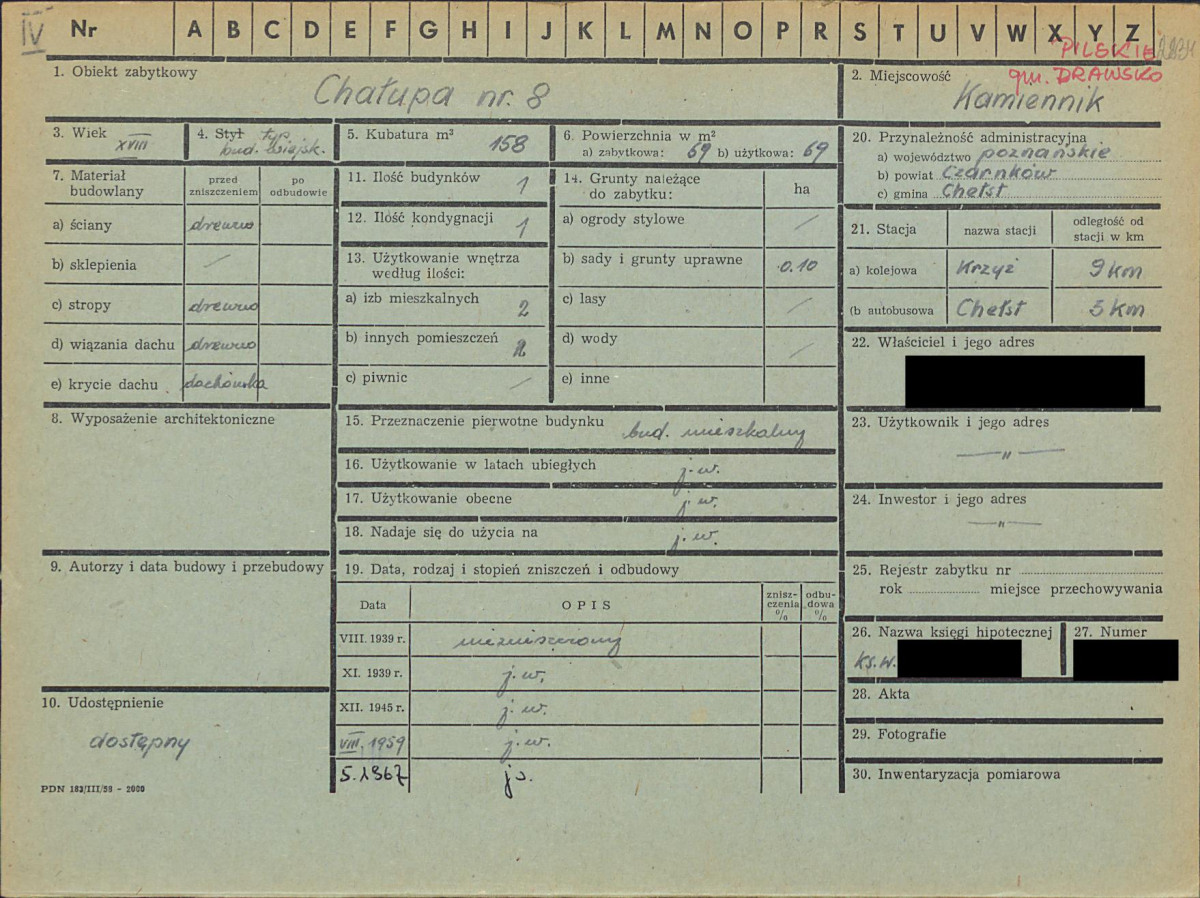 IV Nr A B C D E F G H I J K L M N O P R S T U V W X Y Z
PILSKIE
gm. DRAWSKO
1. Obiekt zabytkowy
Chałupa nr. 8
2. Miejscowość
Kamiennik
3. Wiek
XVIII
4. Styl typ
bud. wiejsk.
5. Kubatura m³ 158
6. Powierzchnia w m²
a) zabytkowa: 69 b) użytkowa: 69
20. Przynależność administracyjna
a) województwo poznańskie
b) powiat Czarnków
c) gmina Chełst
7. Materiał budowlany
przed zniszczeniem
po odbudowie
a) ściany drewno
b) sklepienia —
c) stropy drewno
d) wiązania dachu drewno
e) krycie dachu dachówka
11. Ilość budynków 1
12. Ilość kondygnacji 1
13. Użytkowanie wnętrza
według ilości:
a) izb mieszkalnych 2
b) innych pomieszczeń
c) piwnic —
14. Grunty należące
do zabytku:
ha
a) ogrody stylowe —
b) sady i grunty uprawne 0.10
c) lasy —
d) wody —
e) inne
21. Stacja
nazwa stacji
odległość od
stacji w km
a) kolejowa Krzyż 9 km
(b autobusowa Chełst 3 km
22. Właściciel i jego adres
8. Wyposażenie architektoniczne
15. Przeznaczenie pierwotne budynku bud. mieszkalny
16. Użytkowanie w latach ubiegłych j.w.
17. Użytkowanie obecne j.w.
18. Nadaje się do użycia na j.w.
23. Użytkownik i jego adres
— " —
24. Inwestor i jego adres
— " —
9. Autorzy i data budowy i przebudowy
19. Data, rodzaj i stopień zniszczeń i odbudowy
Data
OPIS
znisz-
czenia
%
odbu-
dowa
%
VIII. 1939 r. niezniszczony
XI. 1939 r. j.w.
XII. 1945 r. j.w.
VIII. 1959 j.w.
5.1967 js.
25. Rejestr zabytku nr
rok miejsce przechowywania
26. Nazwa księgi hipotecznej
Ks.w.
27. Numer
28. Akta
29. Fotografie
30. Inwentaryzacja pomiarowa
10. Udostępnienie
dostępny
PDN 182/III/59 - 2000